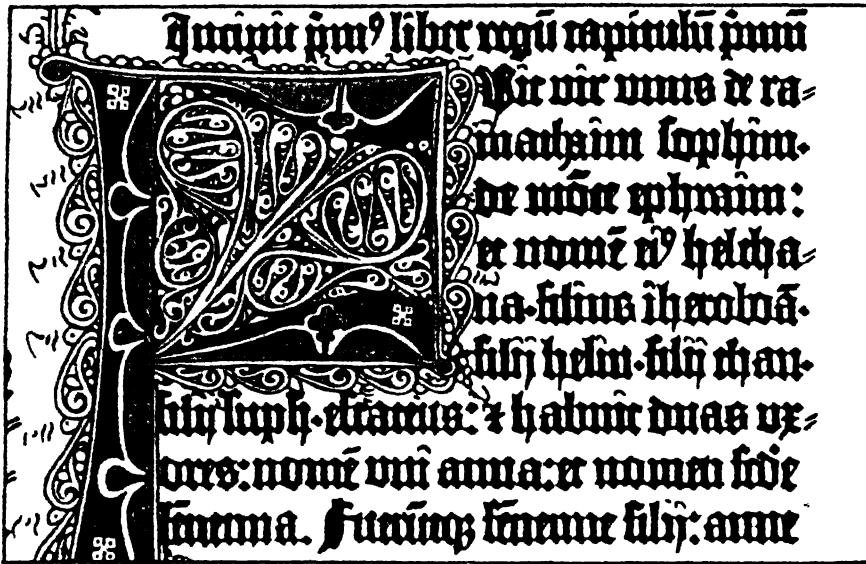 Incipit p̄mꝰ liber regū capitulū pimū
Fuit vir unus de ra⸗
mathaim sophim·
de mōte ephraim:
et nomē eiꝰ helcha⸗
na·filius iheroboā·
filij heliu·filij thau·
filij suph·effrateus: ⁊ habuit duas ux⸗
ores: nomē uni anna: et nomen scd̄e
fēnenna. Fuerūtqꝫ fēnenne filij: anne